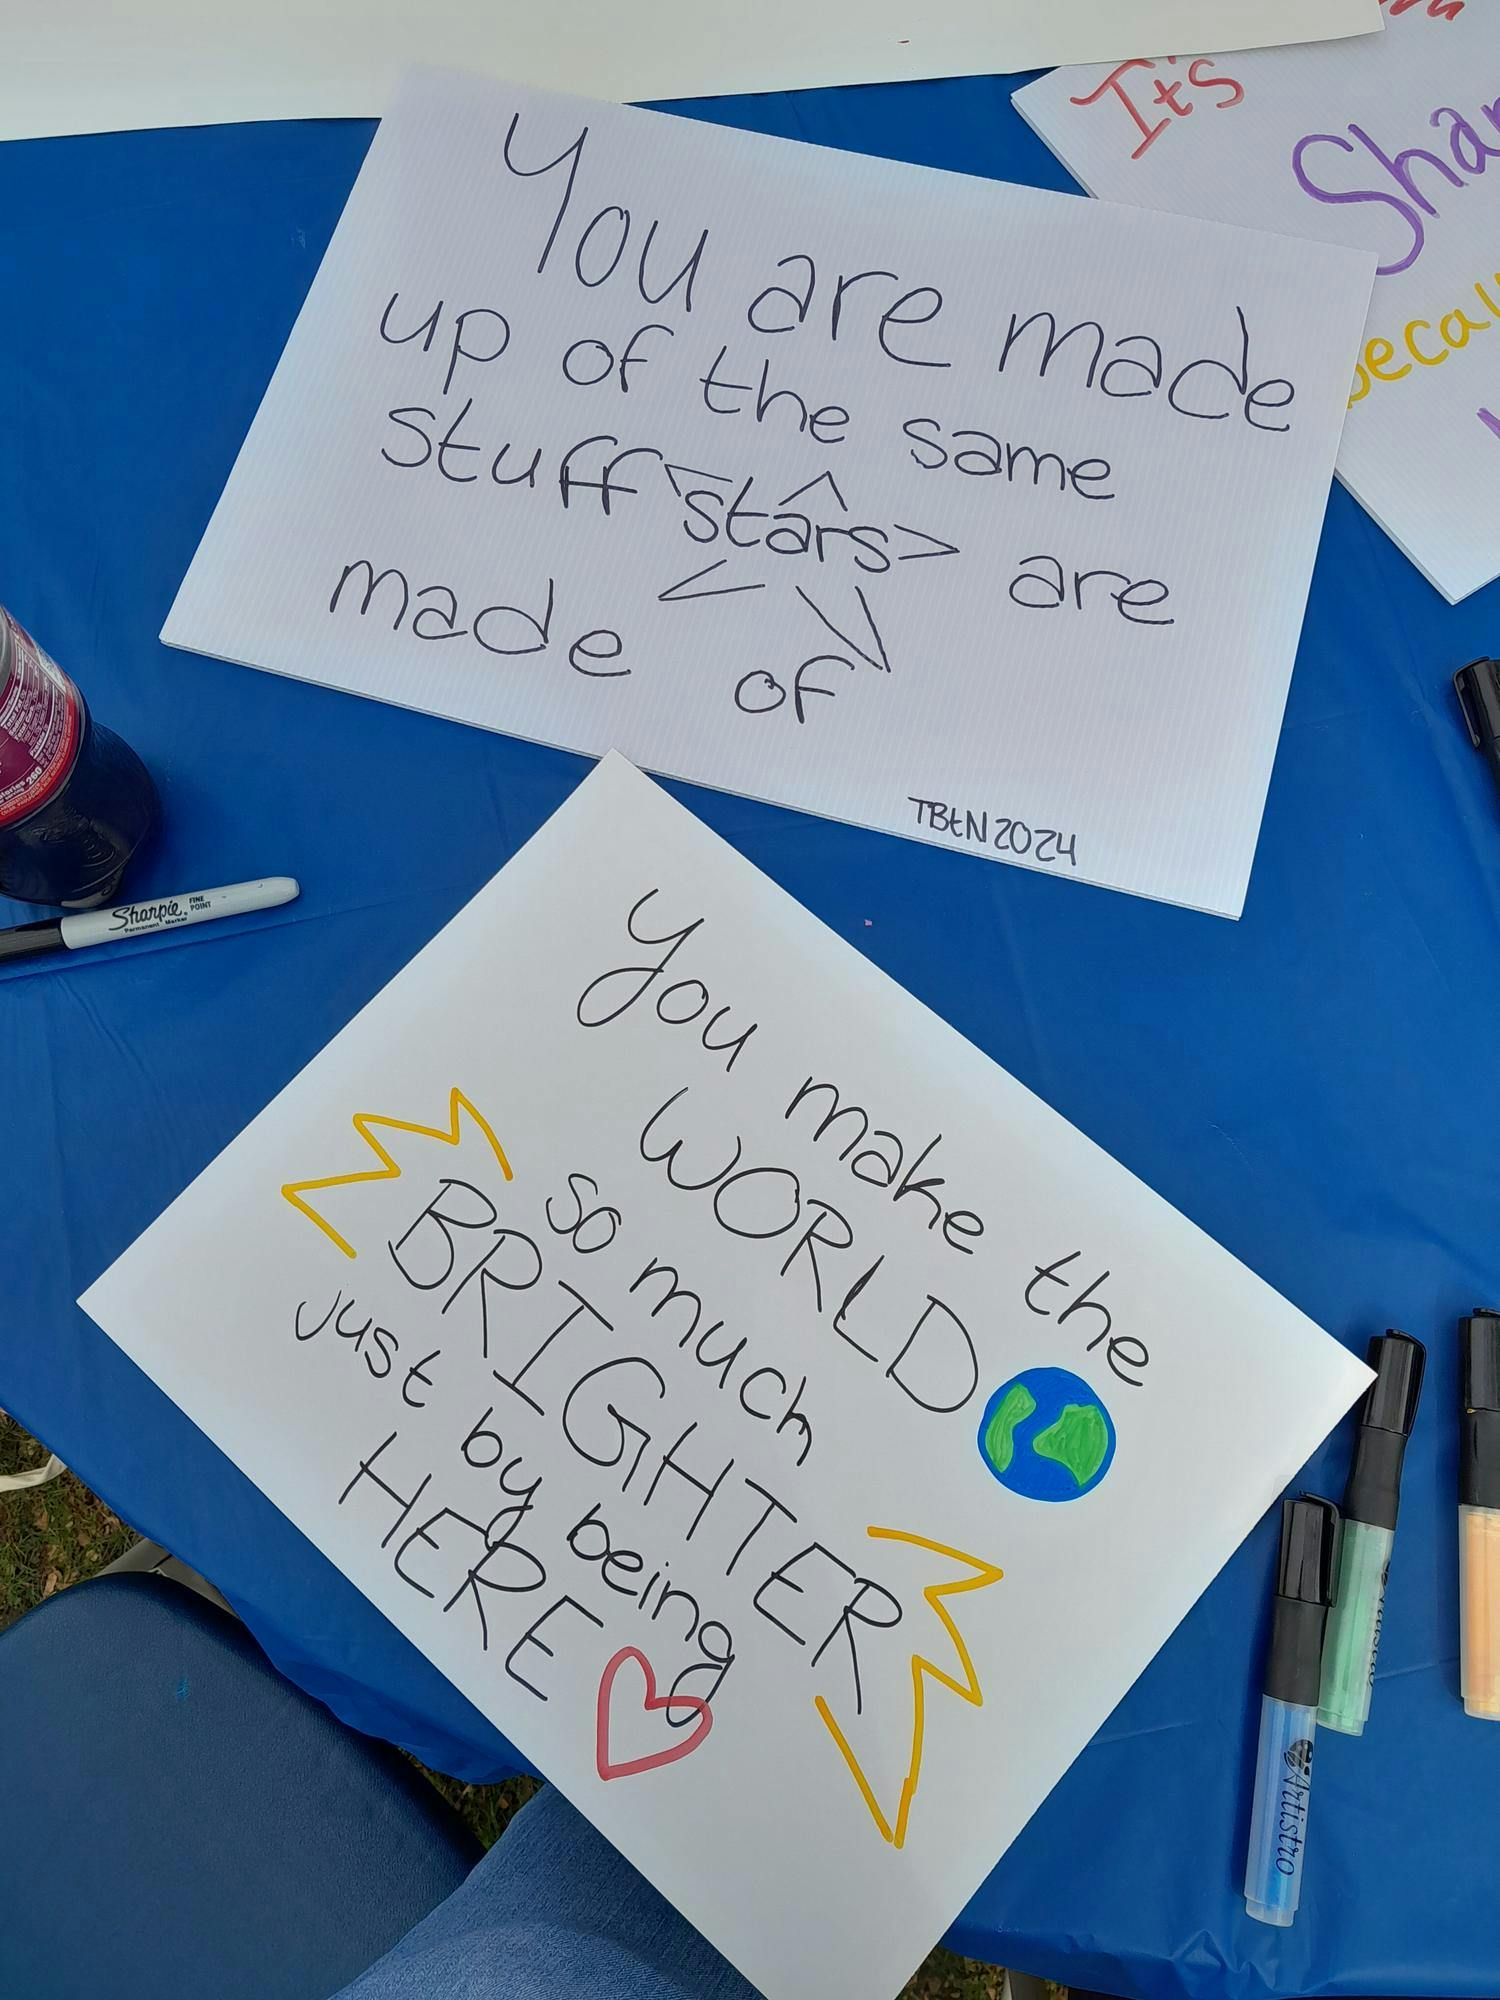 You are made
up of the same
stuff stars are
made of
TBtN2024
You make the
WORLD
so much
BRIGHTER
just by being
HERE
It's
Sharpie
FINE
POINT
Permanent Marker
260
Artistro